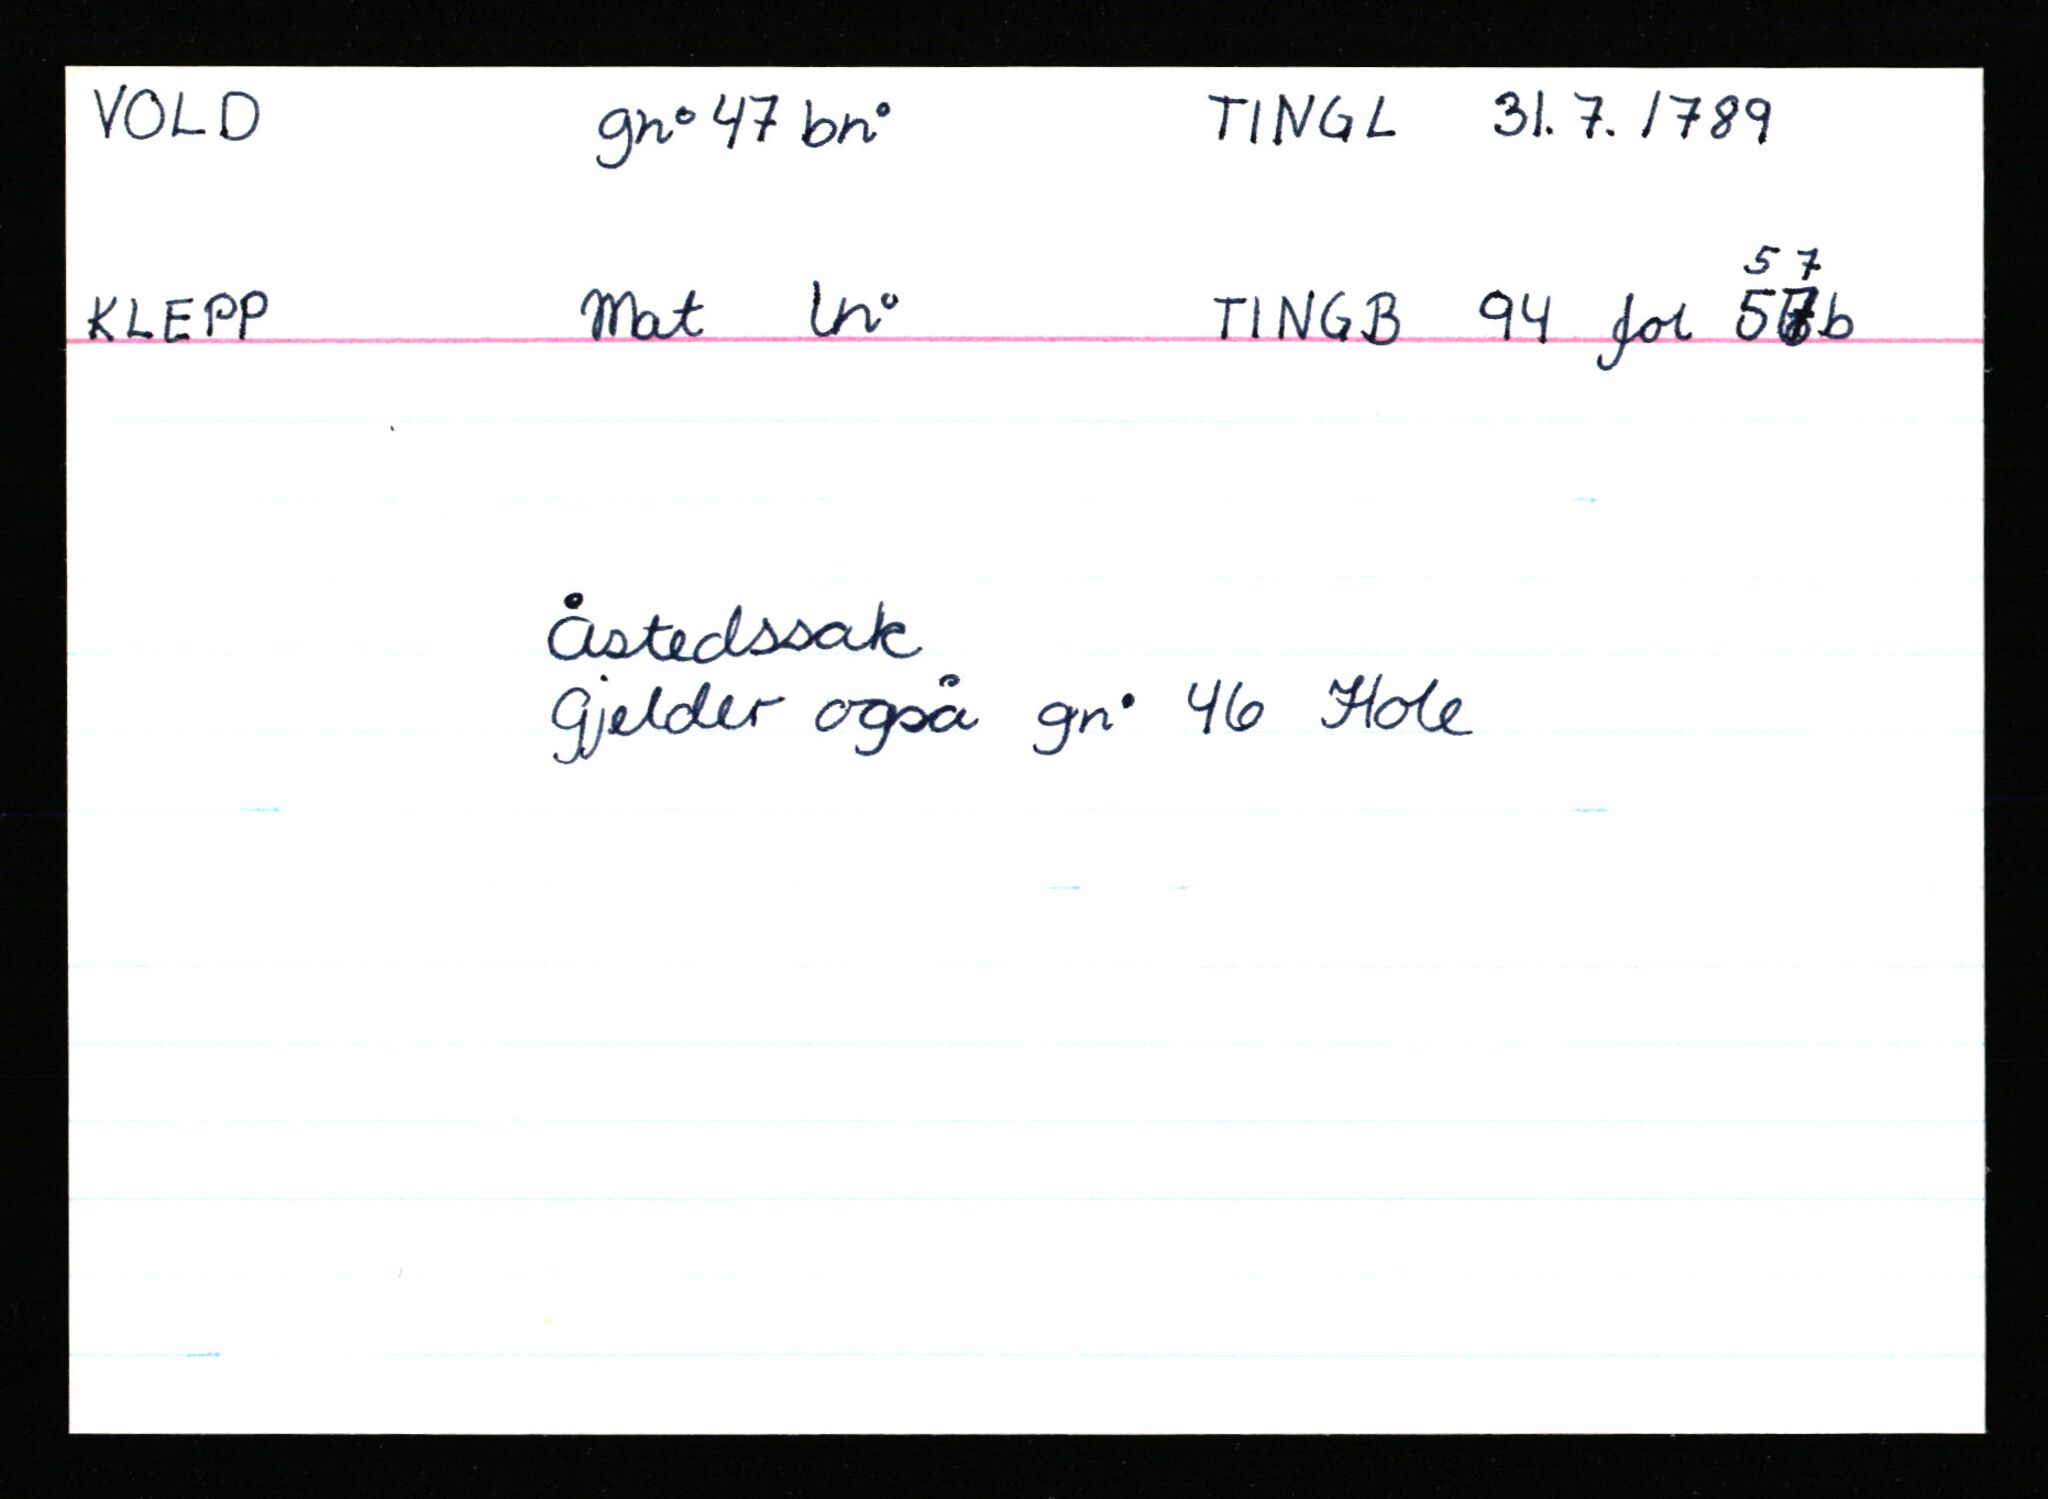 VOLD gn° 47 bn° TINGL 31.7.1789
57
KLEPP Mat ln° TINGB 94 fol 57b
Åstedssak
Gjelder også gn° 46 Hole